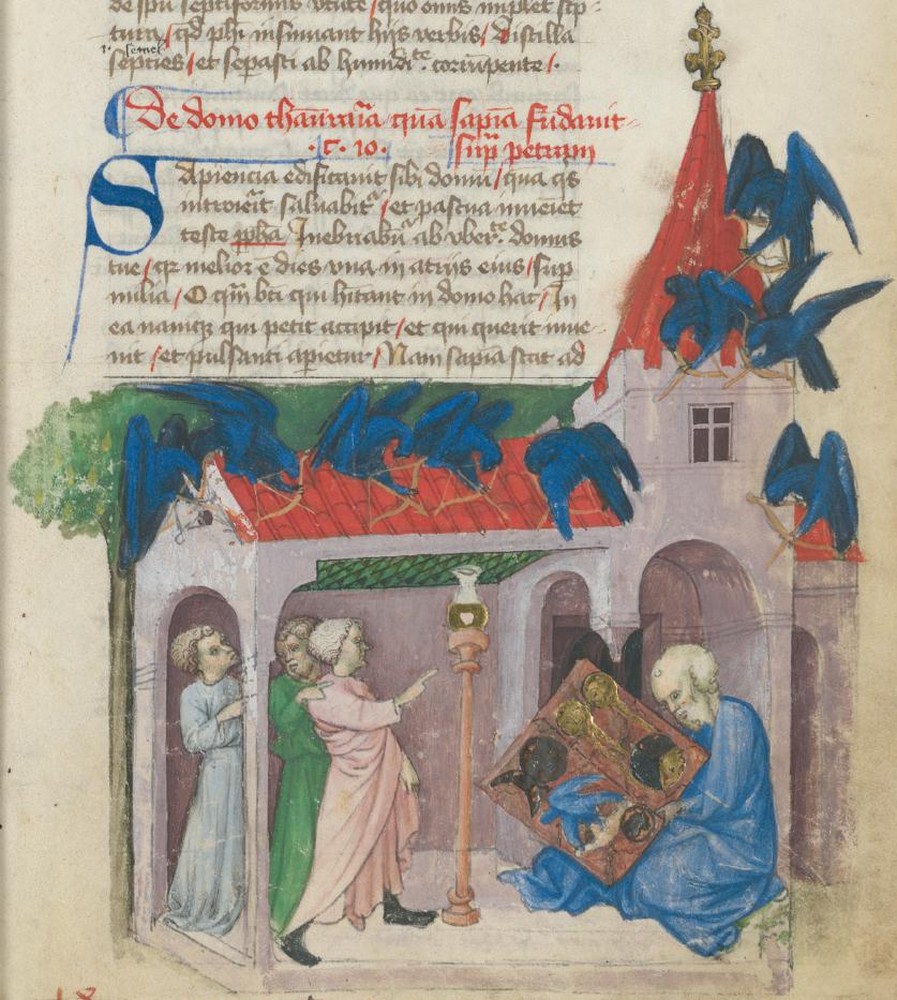 de spū septiformis v̄tute / quo om̄is implet scp-
tura / qd phī insinuant hijs verbis / Distilla
septies / et sepasti ab humidi.te corrūpente /.
1. semel
De domo thaūraīa quā sapīa fūdauit
.c. 10. sup̄ petram
Sapiencia edificauit sibi domū / qua qs
introieīt saluabit / et pascua inueiet
teste ppha Inebriabū ab vber.te domus
tue / qr melior ē dies vna in atrijs eius / sup
milia / O qm̄ bti qui hītant in domo hac / In
ea namqz qui petit accipit / et qui querit inue-
nit / et pulsanti apietur / Nam sapīa stat ad